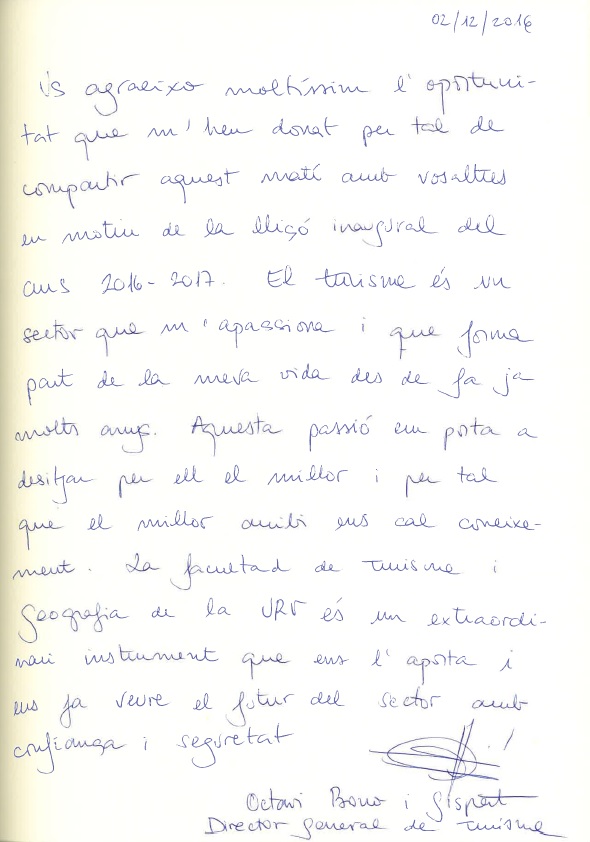 02/12/2016
Us agraeixo moltíssim l'oportuni-
tat que m'heu donat per tal de
compartir aquest matí amb vosaltres
en motiu de la lliçó inaugural del
curs 2016-2017. El turisme és un
sector que m'apassiona i que forma
part de la meva vida des de fa ja
molts anys. Aquesta passió em porta a
desitjar per ell el millor i per tal
que el millor arribi ens cal coneixe-
ment. La facultad de turisme i
Geografia de la URV és un extraordi-
nari instrument que ens l'aporta i
ens fa veure el futur del sector amb
confiança i seguretat
Octavi Bono i Gispert
Director General de turisme